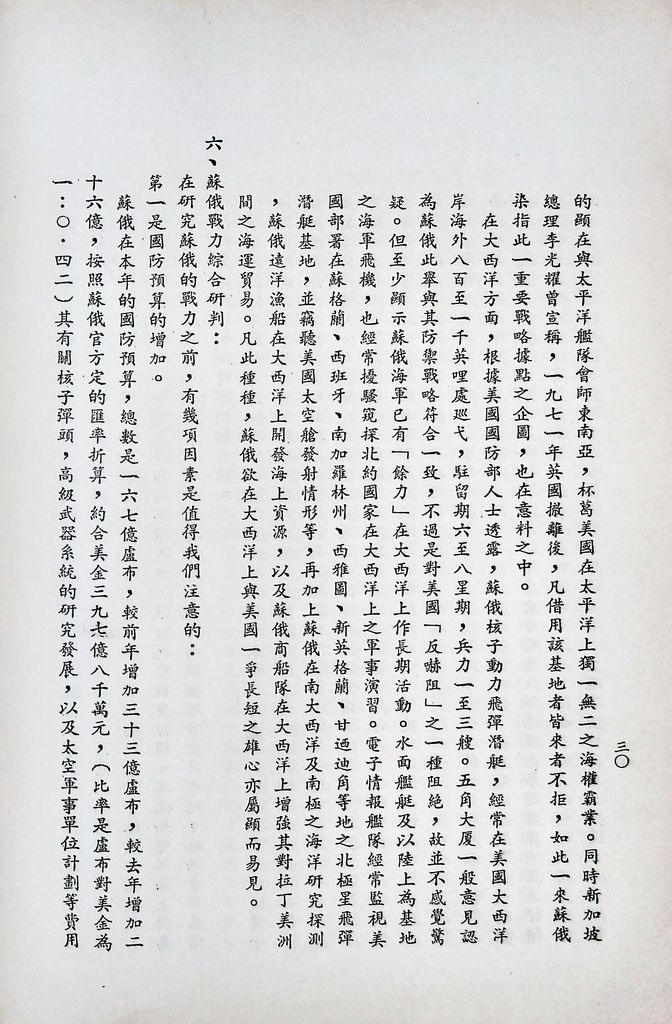 三〇
的顯在與太平洋艦隊會師東南亞，杯葛美國在太平洋上獨一無二之海權霸業。同時新加坡
總理李光耀曾宣稱，一九七一年英國撤離後，凡借用該基地者皆來者不拒，如此一來蘇俄
染指此一重要戰略據點之企圖，也在意料之中。
在大西洋方面，根據美國國防部人士透露，蘇俄核子動力飛彈潛艇，經常在美國大西洋
岸海外八百至一千英哩處巡弋，駐留期六至八星期，兵力一至三艘。五角大厦一般意見認
為蘇俄此舉與其防禦戰略符合一致，不過是對美國「反嚇阻」之一種阻絶，故並不感覺驚
疑。但至少顯示蘇俄海軍已有「餘力」在大西洋上作長期活動。水面艦艇及以陸上為基地
之海軍飛機，也經常擾騷窺探北約國家在大西洋上之軍事演習。電子情報艦隊經常監視美
國部署在蘇格蘭、西班牙、南加羅林州、西雅圖、新英格蘭、甘迺迪角等地之北極星飛彈
潛艇基地，並竊聽美國太空艙發射情形等，再加上蘇俄在南大西洋及南極之海洋研究探測
，蘇俄遠洋漁船在大西洋上開發海上資源，以及蘇俄商船隊在大西洋上增強其對拉丁美洲
間之海運貿易。凡此種種，蘇俄欲在大西洋上與美國一爭長短之雄心亦屬顯而易見。
六、蘇俄戰力綜合研判：
在研究蘇俄的戰力之前，有幾項因素是值得我們注意的：
第一是國防預算的增加。
蘇俄在本年的國防預算，總數是一六七億盧布，較前年增加三十三億盧布，較去年增加二
十六億，按照蘇俄官方定的匯率折算，約合美金三九七億八千萬元，（比率是盧布對美金為
一：〇．四二）其有關核子彈頭，高級武器系統的研究發展，以及太空軍事單位計劃等費用